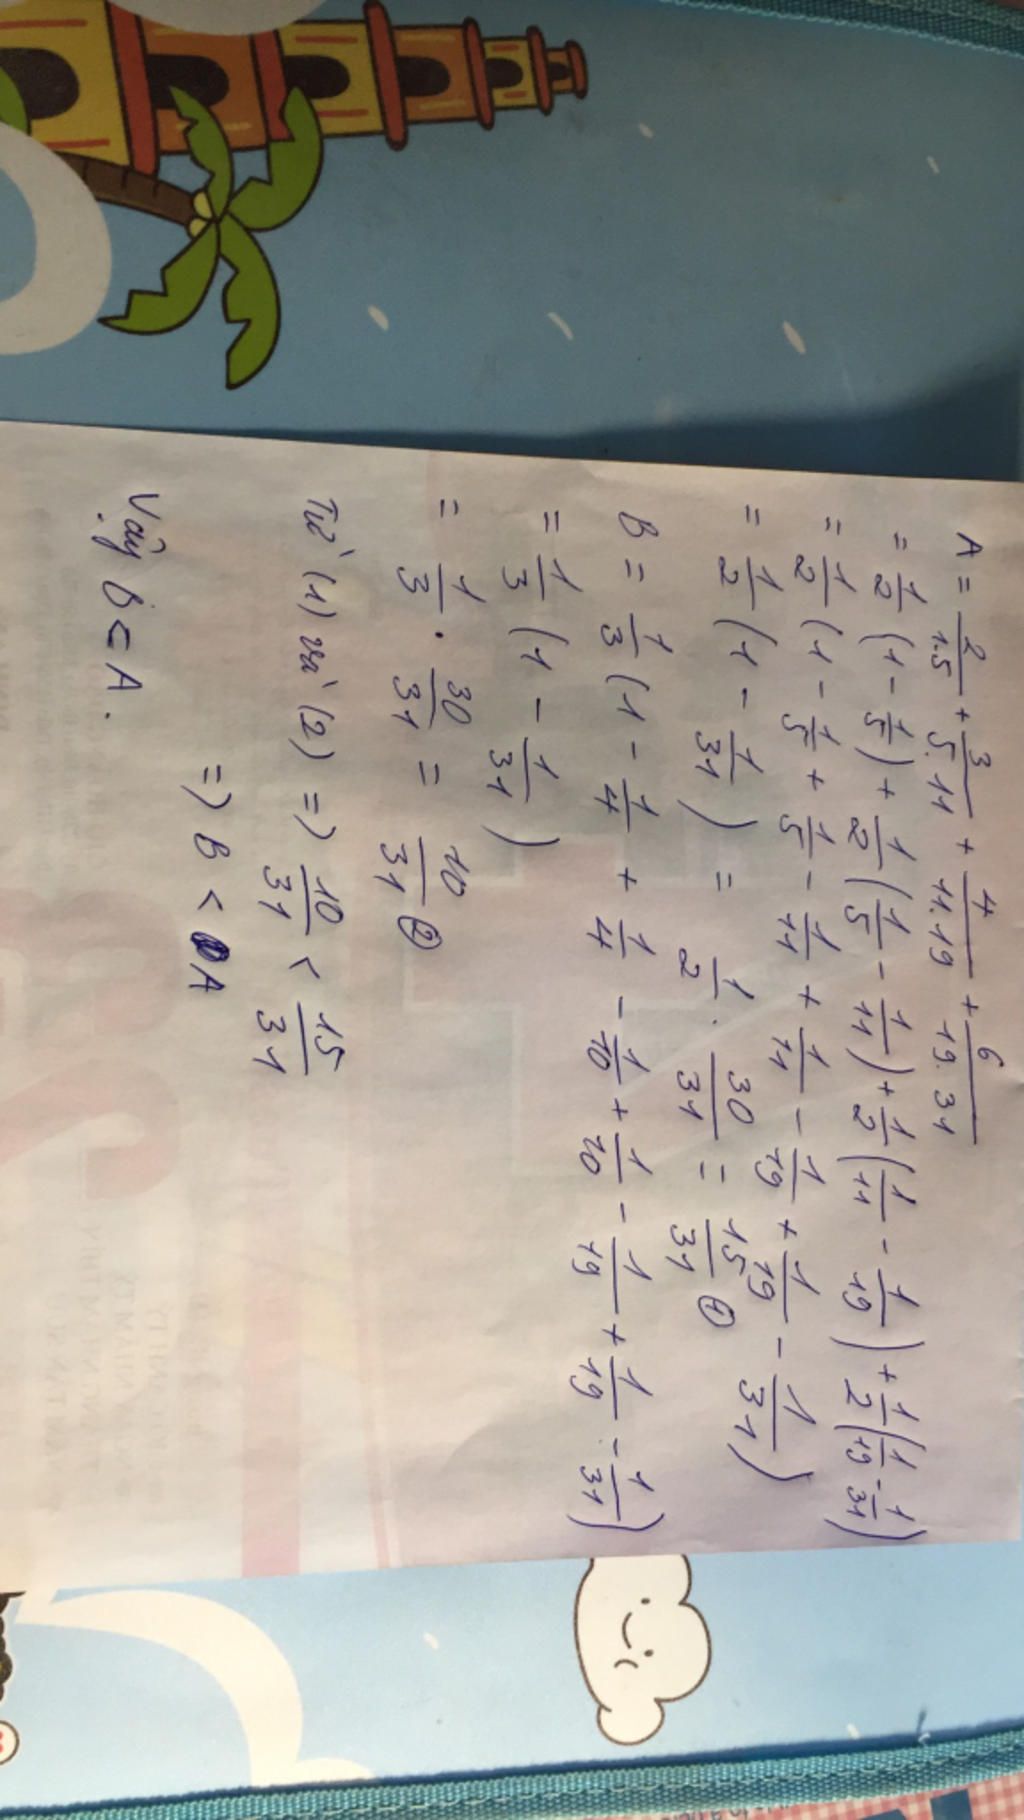 A = 2/1.5 + 3/5.11 + 4/11.19 + 6/19.31
= 1/2 (1 - 1/5) + 1/2 (1/5 - 1/11) + 1/2 (1/11 - 1/19) + 1/2 (1/19 - 1/31)
= 1/2 (1 - 1/5 + 1/5 - 1/11 + 1/11 - 1/19 + 1/19 - 1/31)
= 1/2 (1 - 1/31) = 1/2 . 30/31 = 15/31 ①
B = 1/3 (1 - 1/4 + 1/4 - 1/10 + 1/10 - 1/19 + 1/19 - 1/31)
= 1/3 (1 - 1/31)
= 1/3 . 30/31 = 10/31 ②
Từ (1) và (2) => 10/31 < 15/31
=> B < A
Vậy B < A.